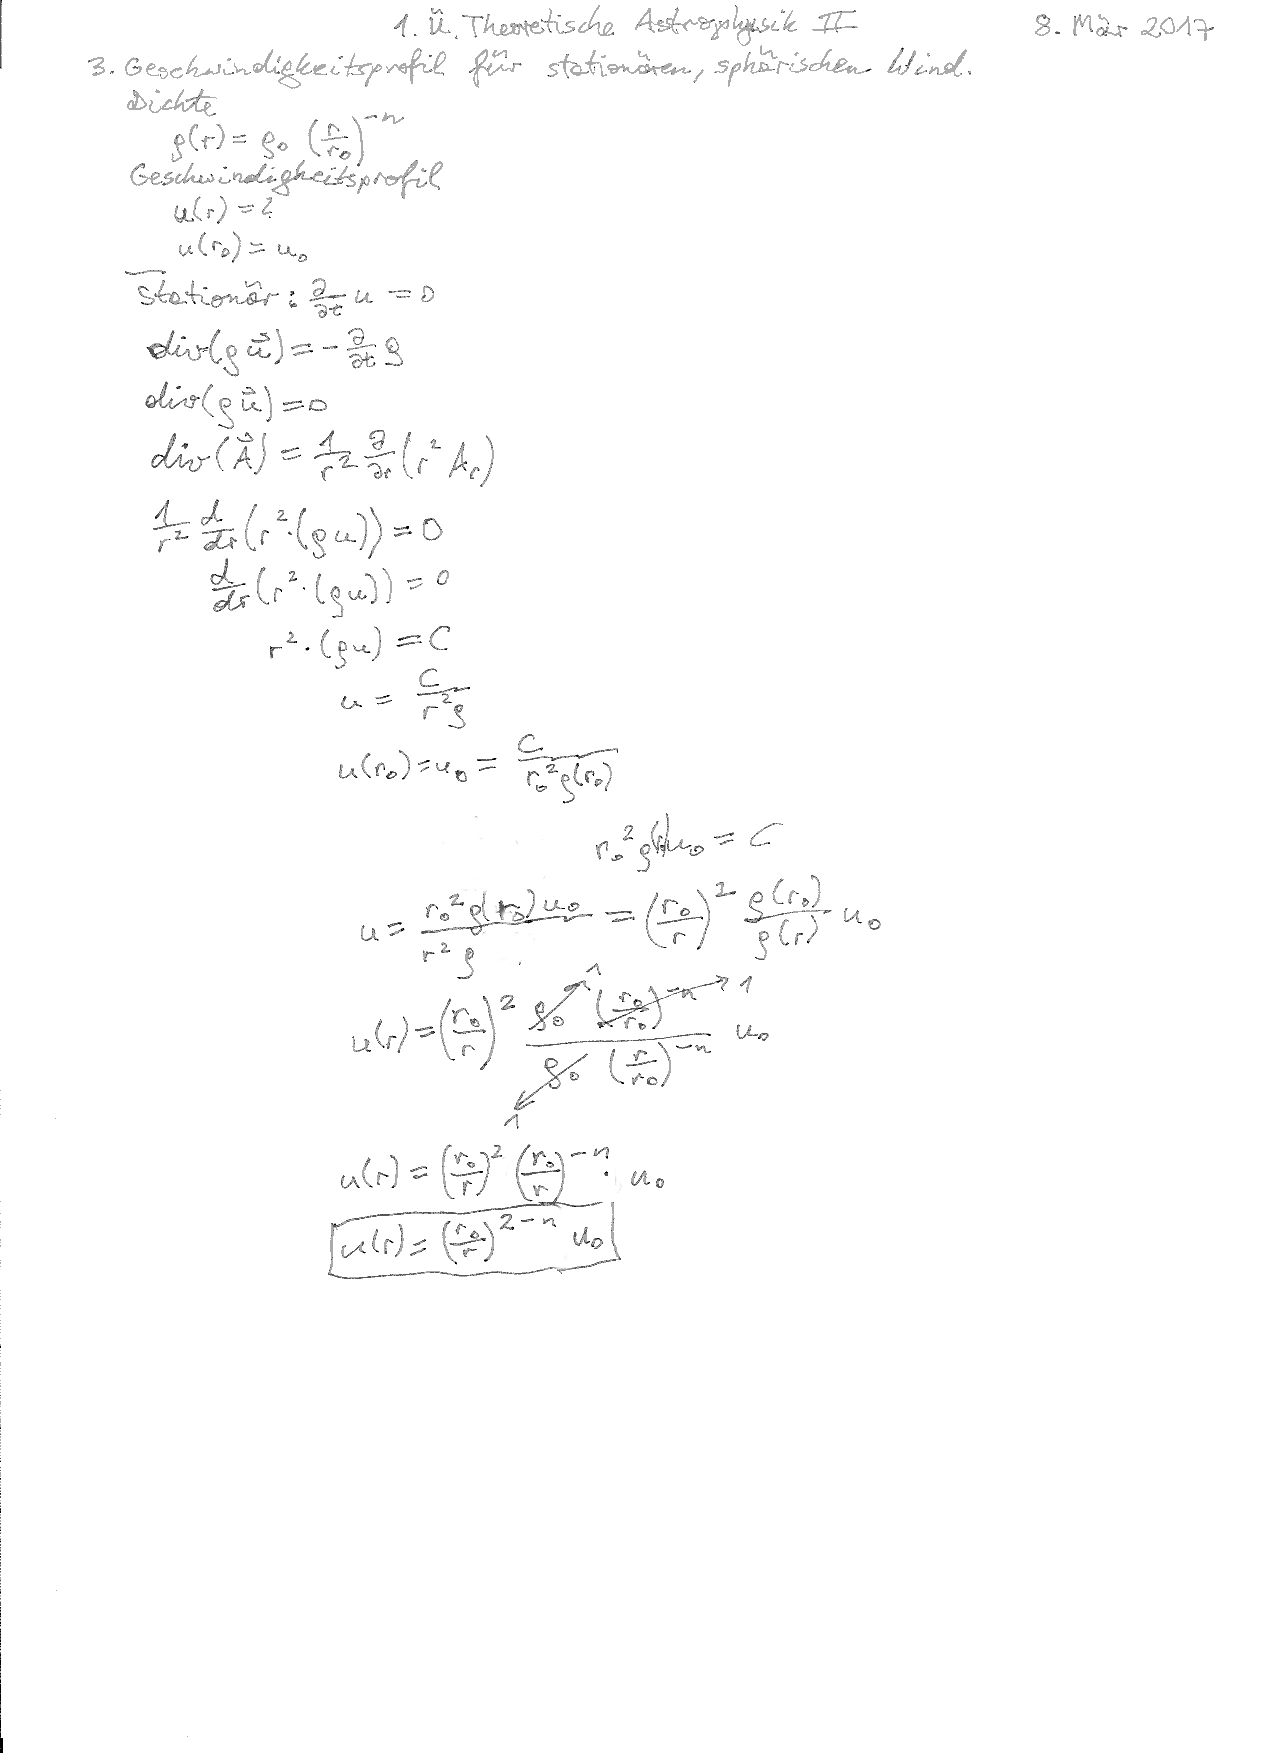 1. Ü. Theoretische Astrophysik II 8. Mär 2017
3. Geschwindigkeitsprofil für stationären, sphärischen Wind.
Dichte
ρ(r) = ρ₀ (r/r₀)^(-n)
Geschwindigkeitsprofil
u(r) = ?
u(r₀) = u₀
Stationär: ∂/∂t u = 0
div(ρ u⃗) = - ∂/∂t ρ
div(ρ u⃗) = 0
div(A⃗) = 1/r² ∂/∂r (r² A_r)
1/r² d/dr (r²·(ρu)) = 0
d/dr (r²·(ρu)) = 0
r²·(ρu) = C
u = C/(r²ρ)
u(r₀) = u₀ = C/(r₀²ρ(r₀))
r₀²ρ(r₀)u₀ = C
u = (r₀²ρ(r₀)u₀)/(r²ρ) = (r₀/r)² ρ(r₀)/ρ(r) u₀
u(r) = (r₀/r)² (ρ₀ (r₀/r₀)^(-n))/(ρ₀ (r/r₀)^(-n)) u₀ 1 1 1
u(r) = (r₀/r)² (r₀/r)^(-n) · u₀
u(r) = (r₀/r)^(2-n) u₀